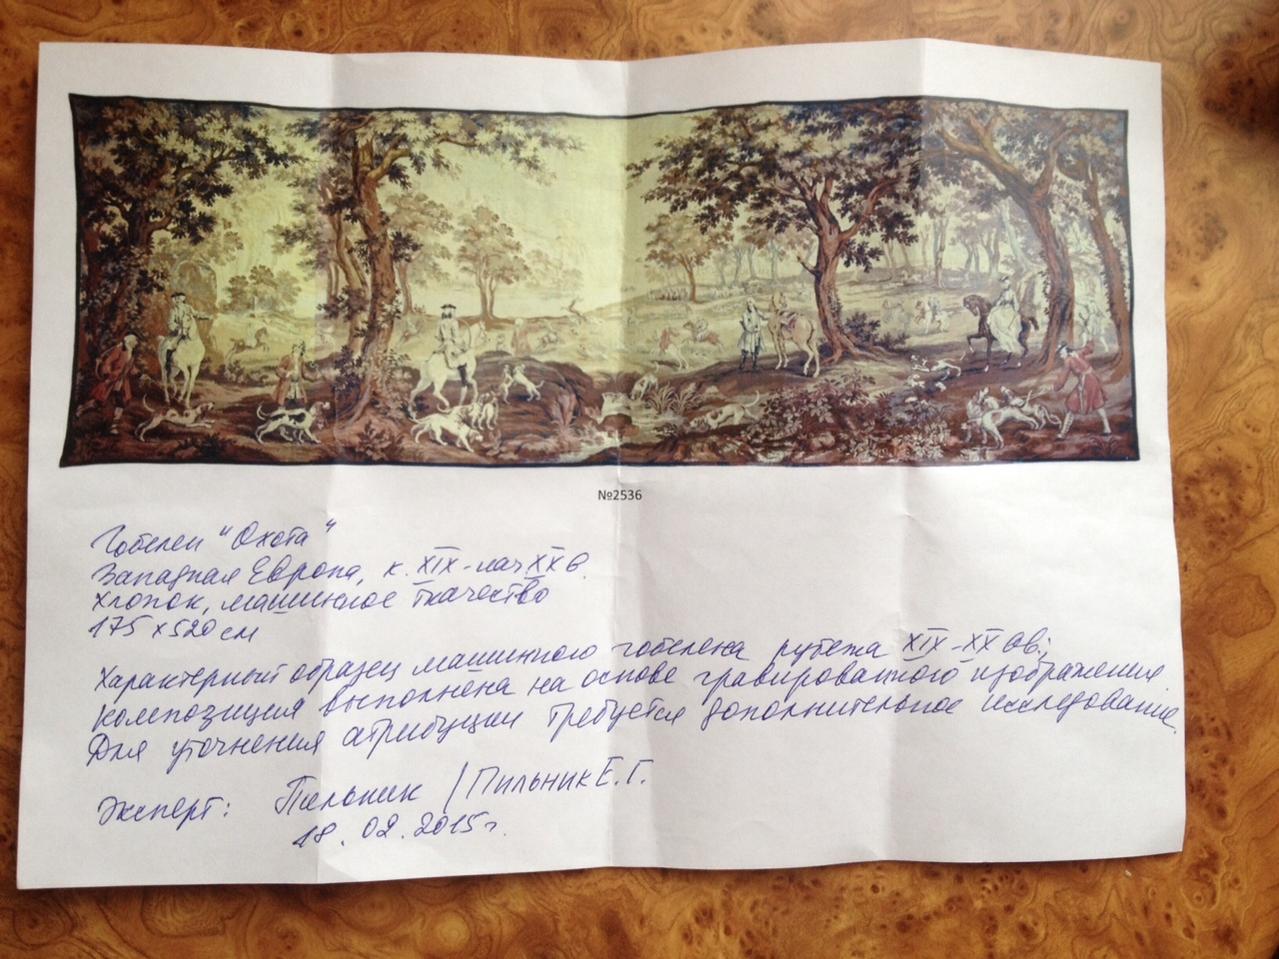 №2536
Гобелен "Охота"
Западная Европа, к. XIX-нач XX в.
хлопок, машинное ткачество
175 x 520 см
Характерный образец машинного гобелена рубежа XIX-XX вв;
композиция выполнена на основе гравированного изображения.
Для уточнения атрибуции требуется дополнительное исследование.
Эксперт: Пильник /Пильник Е. Г.
18. 02. 2015 г.